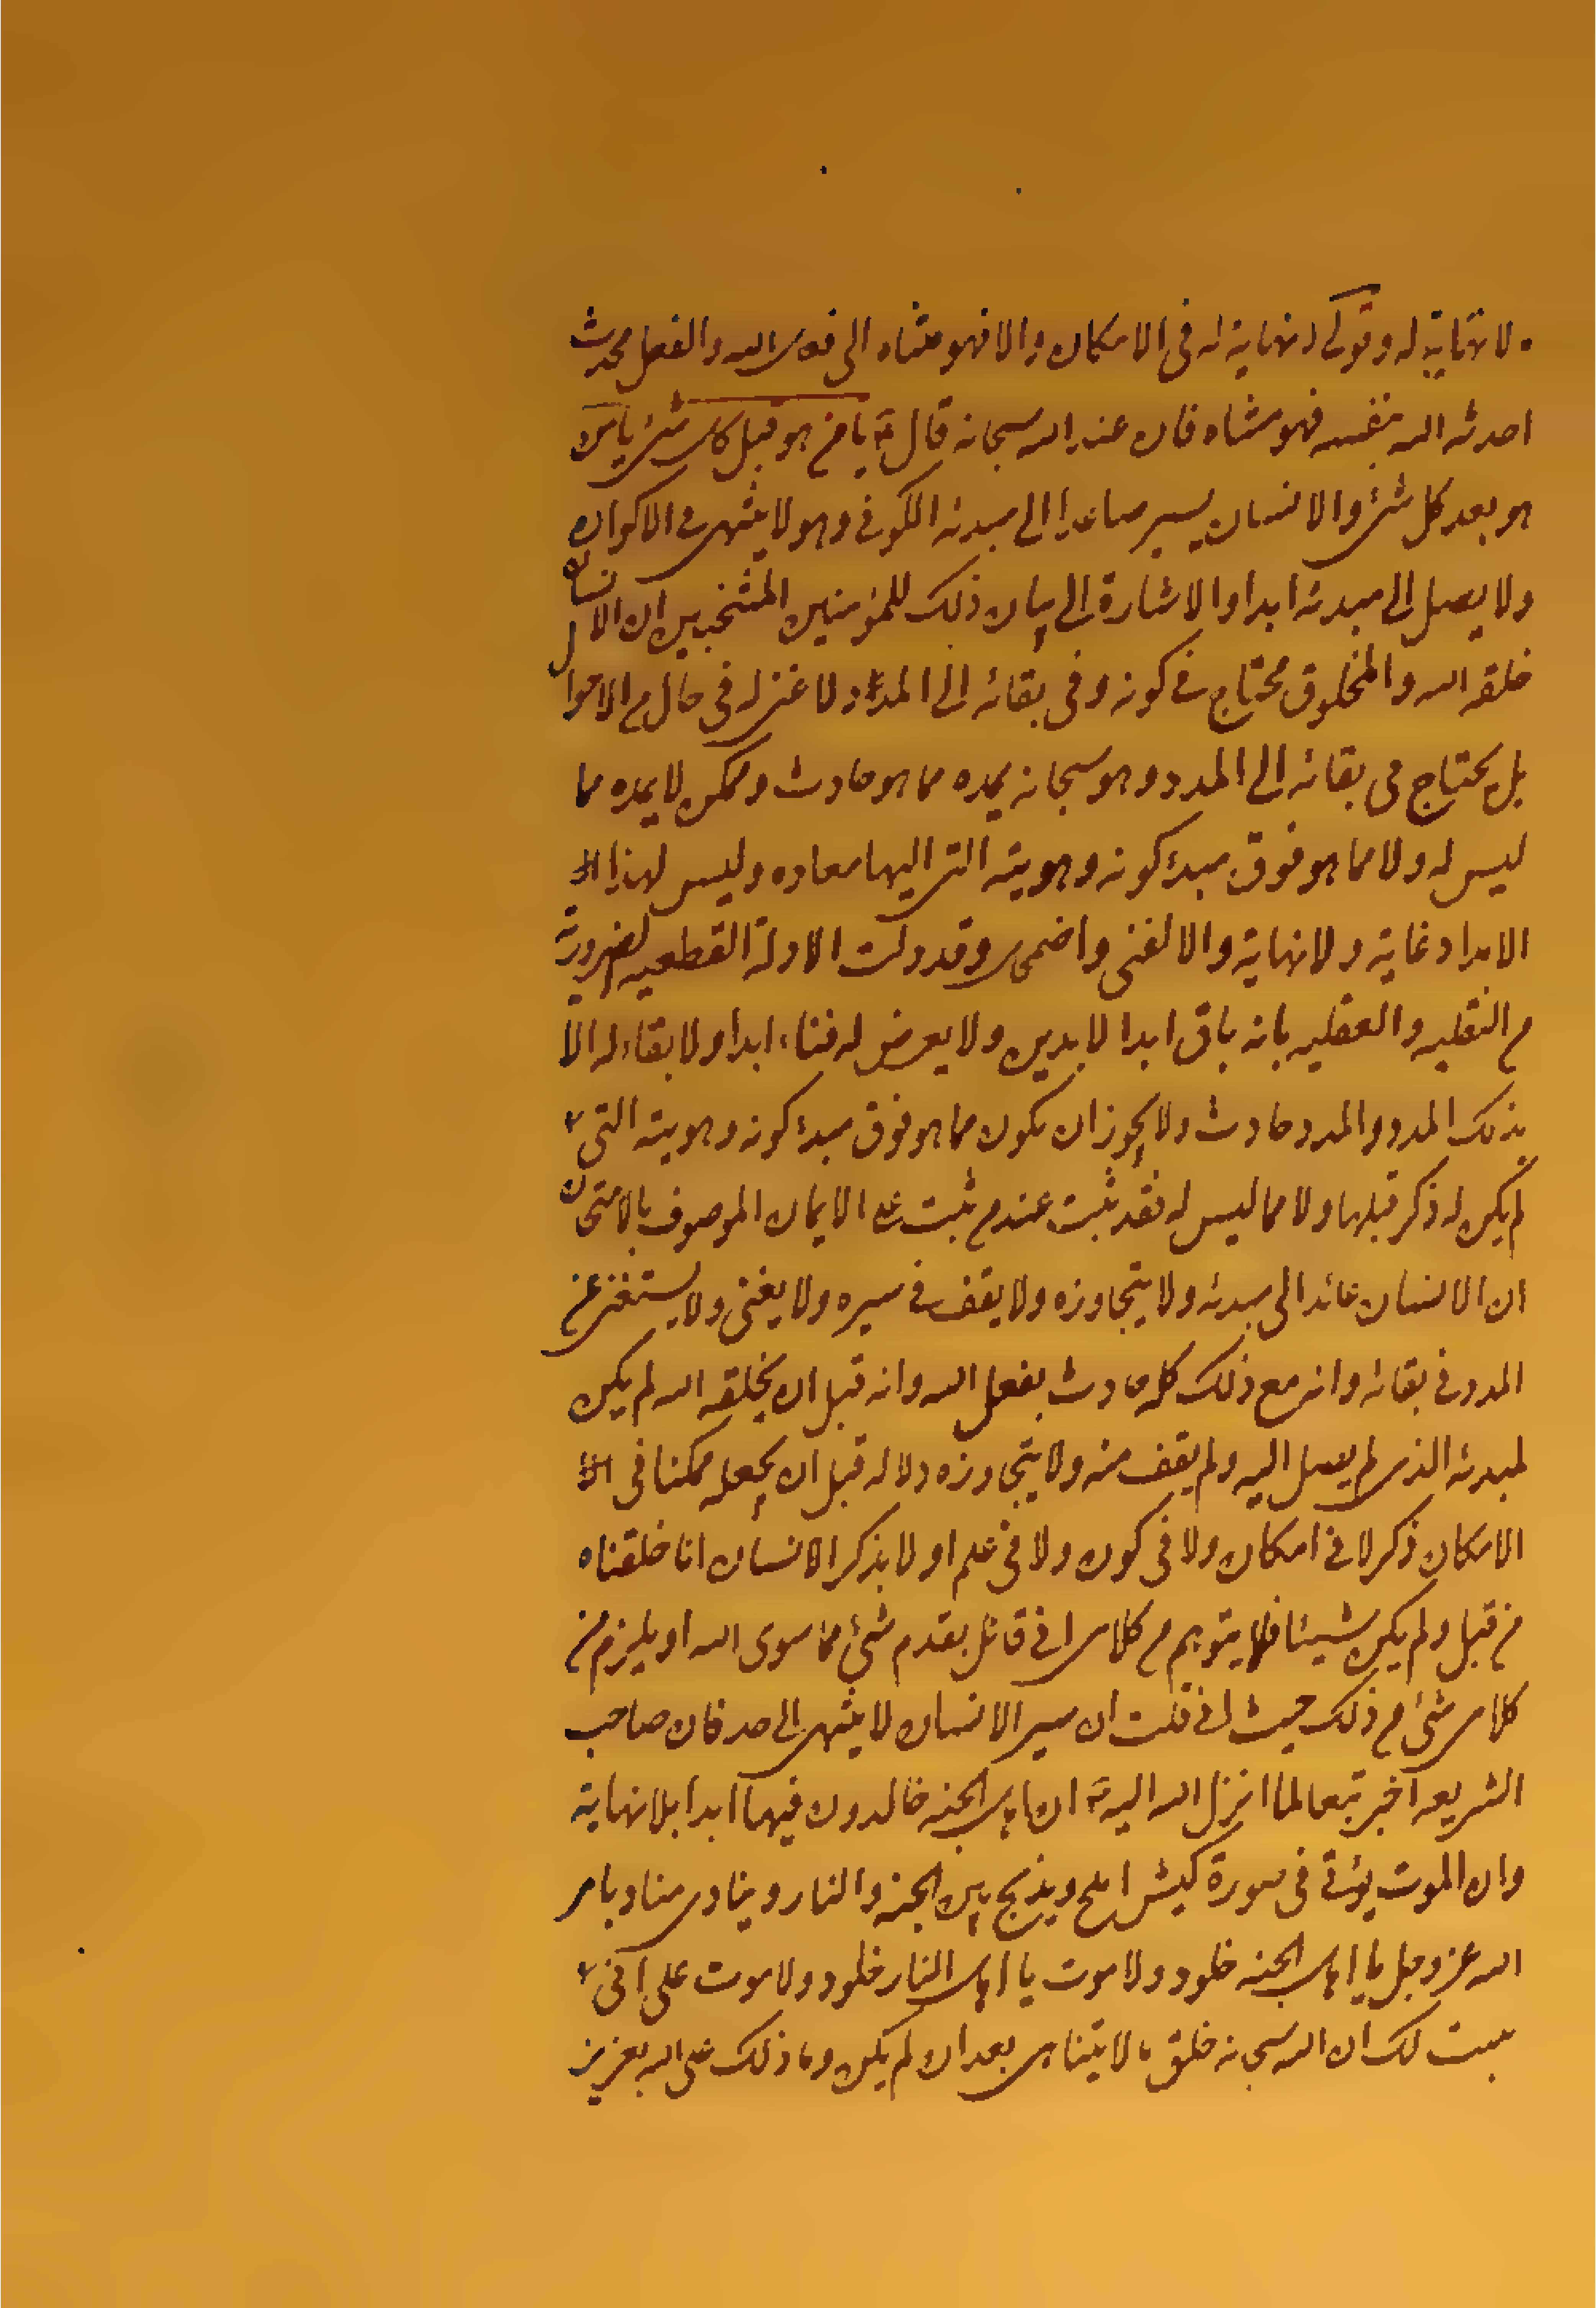 لا نهاية له وقولي لا نهاية له في الامكان والا فهو متناه الى فعل الله والفعل محدث
احدثه الله بنفسه فهو متناه فان عند الله سبحانه قال ع يا من هو قبل كل شئ يا من
هو بعد كل شئ والانسان يسير صاعدا الى مبدئه الكوني وهو لا ينتهي في الاكوان
ولا يصل الى مبدئه ابدا والاشارة الى بيان ذلك للمؤمنين المنتخبين ان الانسان
خلقه الله والمخلوق محتاج في كونه وفي بقائه الى المدد ولا غنى له في حال من الاحوال
بل يحتاج في بقائه الى المدد وهو سبحانه يمده مما هو حادث وممكن لا يمده مما
ليس له ولا مما هو فوق مبدء كونه وهويته التي اليها معاده وليس لهذا
الامداد غاية ولا نهاية والا لفني واضمحل وقد دلت الادلة القطعيه الضرورية
من النقليه والعقليه بانه باق ابدا لابدين ولا يعرض له فناء ابدا ولا بقاء له الا
بذلك المدد والمدد حادث ولا يجوز ان يكون مما هو فوق مبدء كونه وهويته التي
لم يكن له ذكر قبلها ولا مما ليس له فقد ثبت عند من ثبت على الايمان الموصوف بالامتحان
ان الانسان عائد الى مبدئه ولا يتجاوزه ولا يقف في سيره ولا يفنى ولا يستغني عن
المدد في بقائه وانه مع ذلك كله حادث بفعل الله وانه قبل ان يخلقه الله لم يكن
لمبدئه الذي لم يصل اليه ولم يقف منه ولا يتجاوزه ولا له قبل ان يجعله ممكنا في
الامكان ذكر لا في امكان ولا في كون ولا في علم اولا يذكر الانسان انا خلقناه
من قبل ولم يكن شيئا فلا يتوهم من كلامي اني قائل بقدم شئ مما سوى الله او يلزم من
كلامي شئ من ذلك حيث اني قلت ان سير الانسان لا ينتهي الى حد فان صاحب
الشريعه اخبر تبعا لما انزل الله اليه ان اهل الجنه خالدون فيها ابدا بلا نهاية
وان الموت يؤتى في صورة كبش املح ويذبح بين الجنة والنار وينادي مناد بامر
الله عز وجل يا اهل الجنه خلود ولا موت يا اهل النار خلود ولا موت على اني
بينت لك ان الله سبحانه خلق ما لا يتناهى بعد ان لم يكن وما ذلك على الله بعزيز